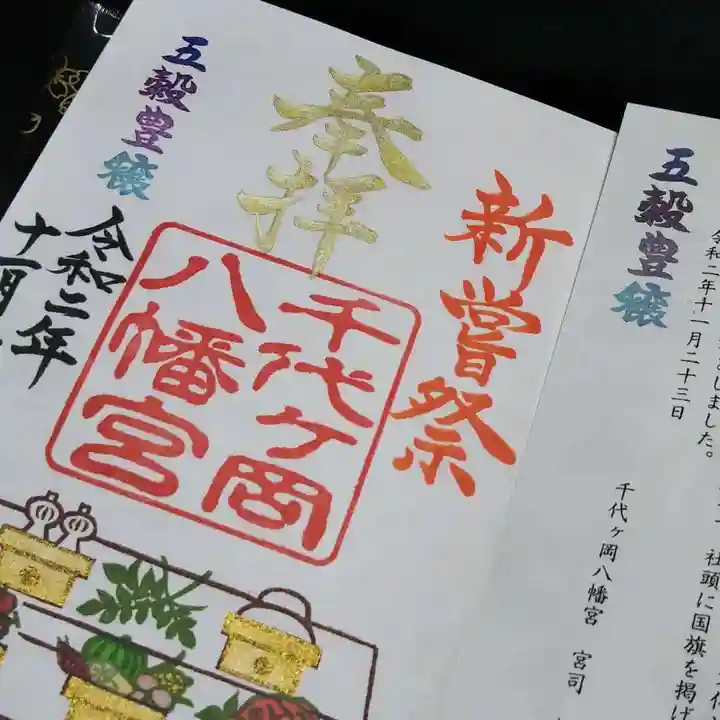 新嘗祭
奉拝
千代ヶ岡
八幡宮
五穀豊穣
令和二年
十一月
五穀豊穣
令和二年十一月二十三日
しました。
社頭に国旗を掲げ
千代ヶ岡八幡宮 宮司